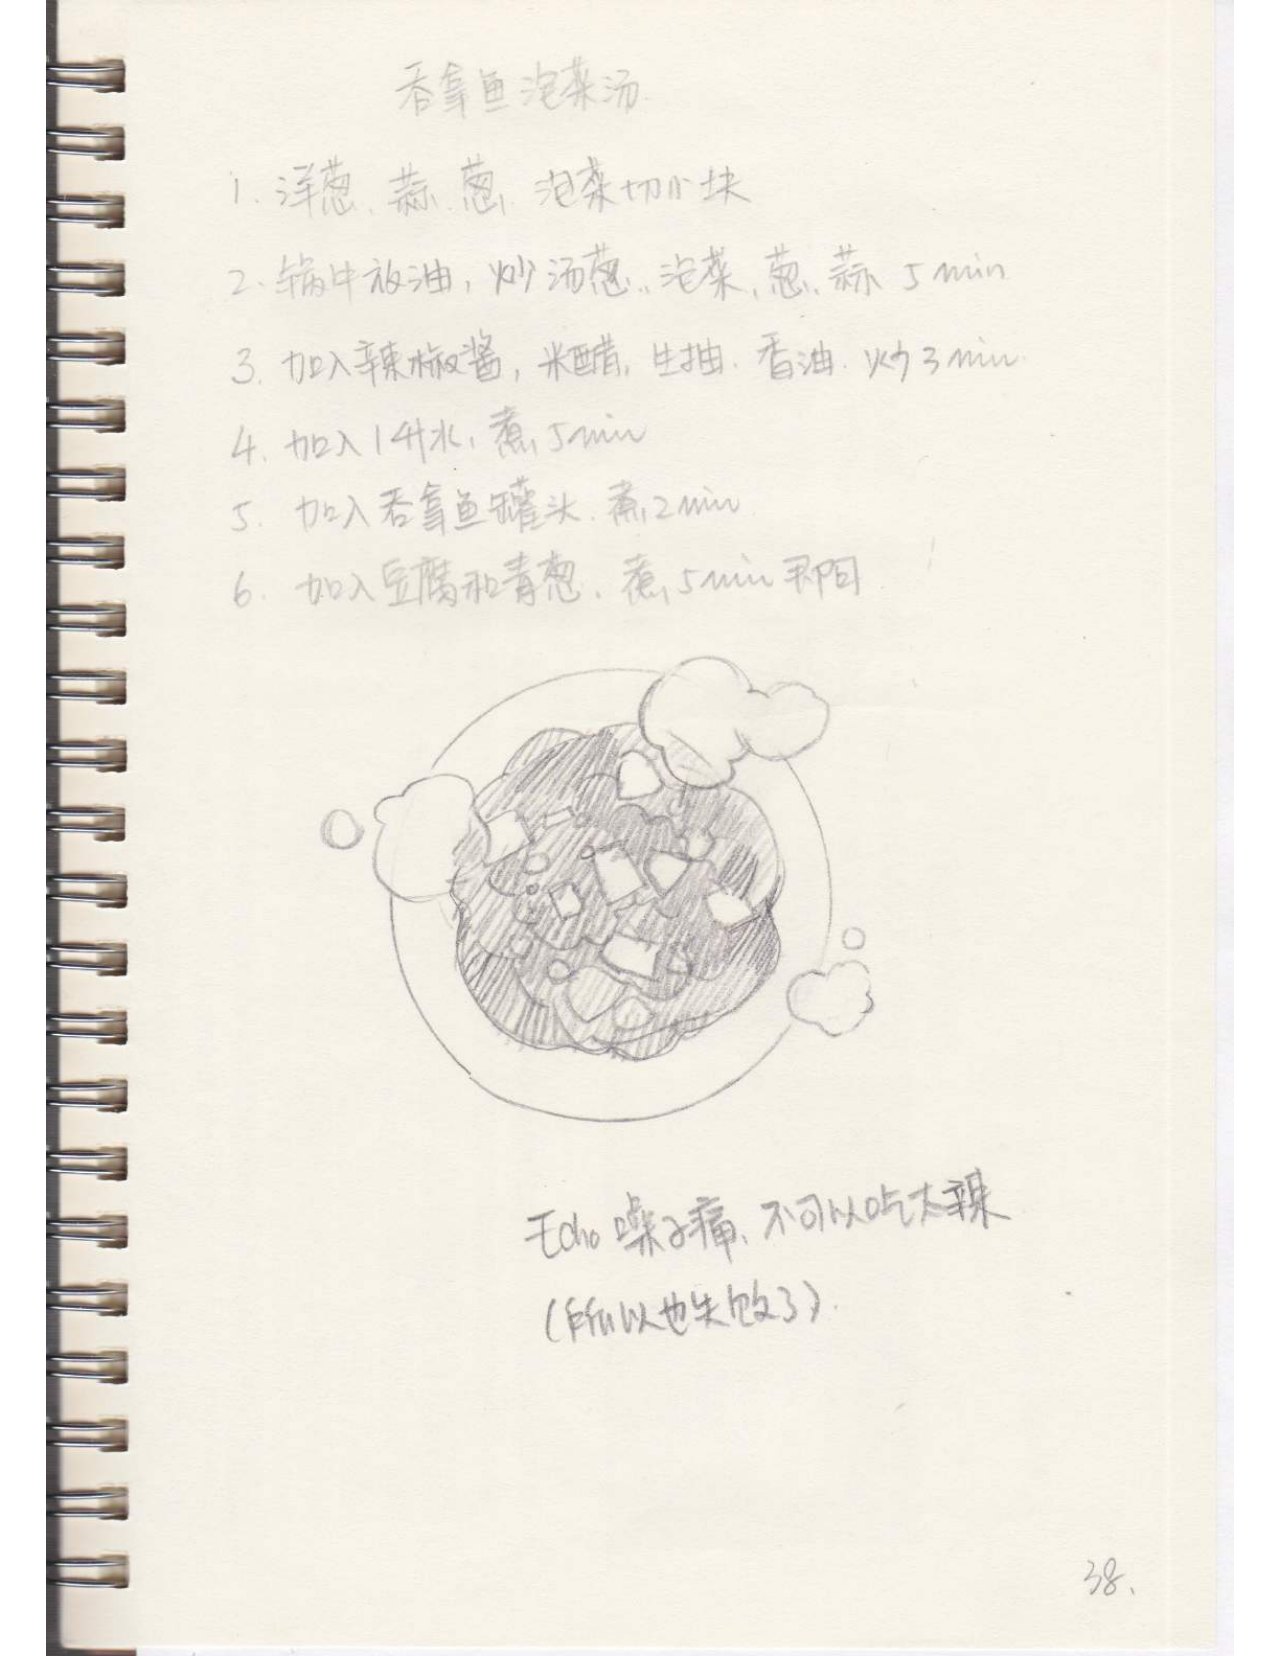 吞拿鱼泡菜汤.
1. 洋葱、蒜、葱、泡菜切小块
2. 锅中放油，炒汤葱、泡菜、葱、蒜 5 min
3. 加入辣椒酱，米醋，生抽、香油、炒3min
4. 加入1升水，煮5min
5. 加入吞拿鱼罐头、煮2min
6. 加入豆腐和青葱、煮5min即可
Echo嗓子痛、不可以吃太辣
(所以也失败了).
38.